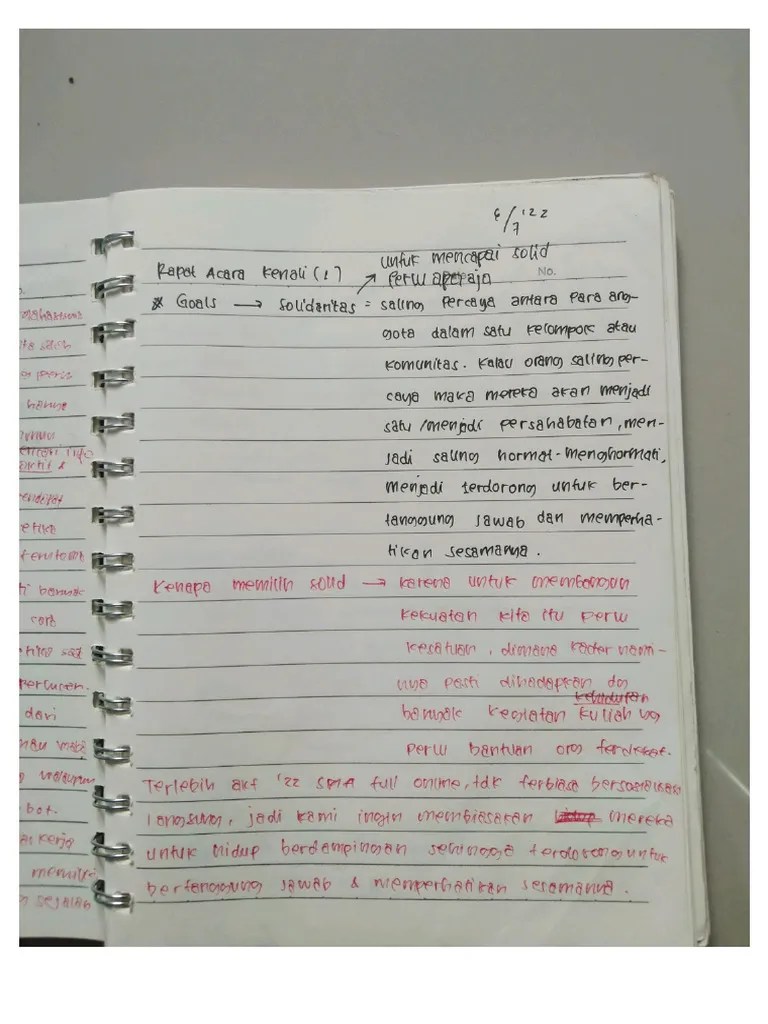 6/7 '22
untuk mencapai solid
Rapat Acara Kenali (1)
perlu apa aja
No.
* Goals → Solidaritas = saling percaya antara para ang-
gota dalam satu kelompok atau
komunitas. Kalau orang saling per-
caya maka mereka akan menjadi
satu /menjadi persahabatan, men-
jadi saling hormat-menghormati,
menjadi terdorong untuk ber-
tanggung jawab dan memperha-
tikan sesamanya.
Kenapa memilih solid → karena untuk membangun
kekuatan kita itu perlu
kesatuan, dimana kader nanti-
nya pasti dihadapkan dg
kehidupan
banyak kegiatan kuliah yg
perlu bantuan org terdekat.
Terlebih akt '22 SMA full online, tdk terbiasa bersosialisasi
langsung, jadi kami ingin membiasakan mereka
untuk hidup berdampingan sehingga terdorong untuk
bertanggung jawab & memperhatikan sesamanya.
mahasiswa
hanya
etika
dari
bot.